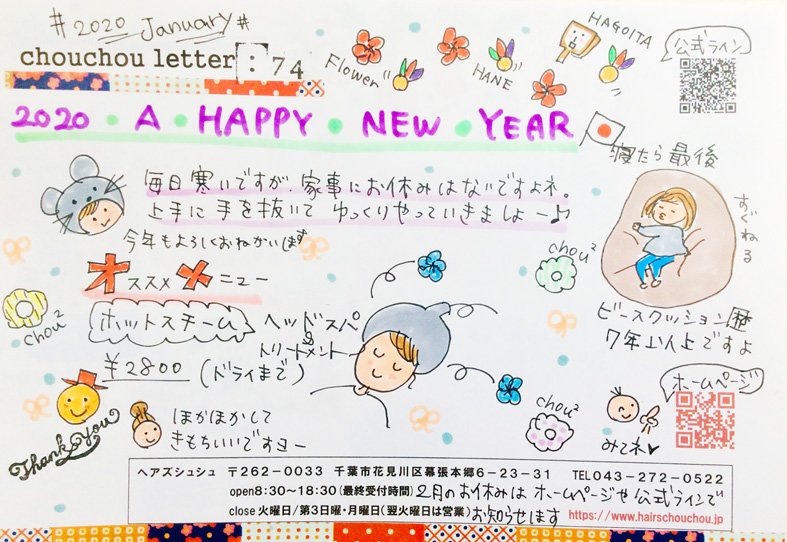 #2020 January#
chouchou letter:74
Flower
HANE
HAGOITA
公式ライン
2020・A・HAPPY・NEW・YEAR
毎日寒いですが、家事にお休みはないですよネ。
上手に手を抜いて ゆっくりやっていきましょー♪
今年もよろしくおねがいします
寝たら最後
すぐねる
オススメメニュー
chou²
chou²
ホットスチーム ヘッドスパ
&
トリートメント
¥2800 (ドライまで)
ビーズクッション歴
7年以上ですよ
ホームページ
みてネ♥
chou²
Thank you
ほかほかして
きもちいいですヨー
ヘアズシュシュ 〒262-0033 千葉市花見川区幕張本郷6-23-31 TEL043-272-0522
open8:30~18:30(最終受付時間) 2月のお休みは ホームページや 公式ラインで
close 火曜日/第3日曜・月曜日(翌火曜日は営業) お知らせします https://www.hairschouchou.jp